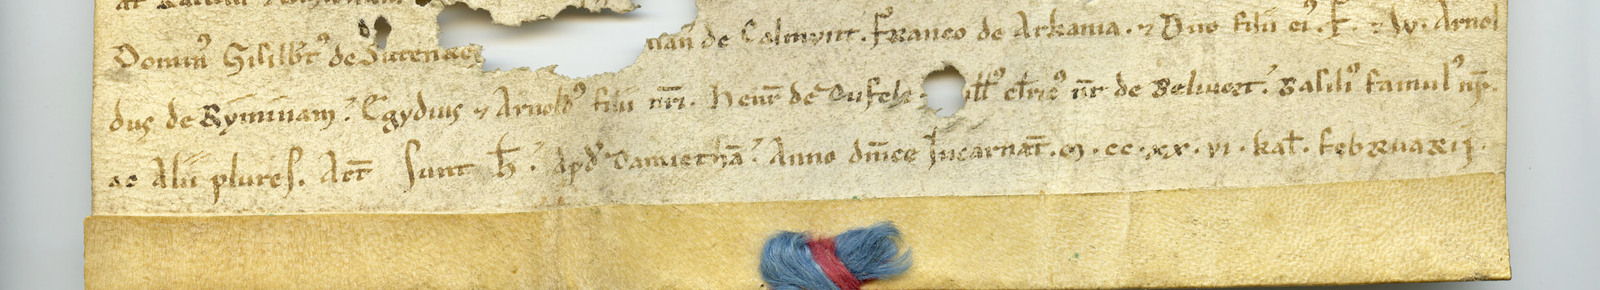 Domin⁹ Gisilb̄t⁹ de Sutenac de Calmunt. Franco de Arkania. ⁊ Duo filii ei⁹. F. ⁊ W. Arnol
dus de Ryminam. Egydius ⁊ Arnold⁹ filii nr̄i. Henr̄ de Cufele cl̄ric⁹ nr̄ de Beluort. Basili⁹ famul⁹ nr̄.
ac Alii plures. Act̄ sunt h̄. Apd̄ Damiethā. Anno dn̄ice Incarnat̄. M. CC. XX. VI. kal̄. Februarii.